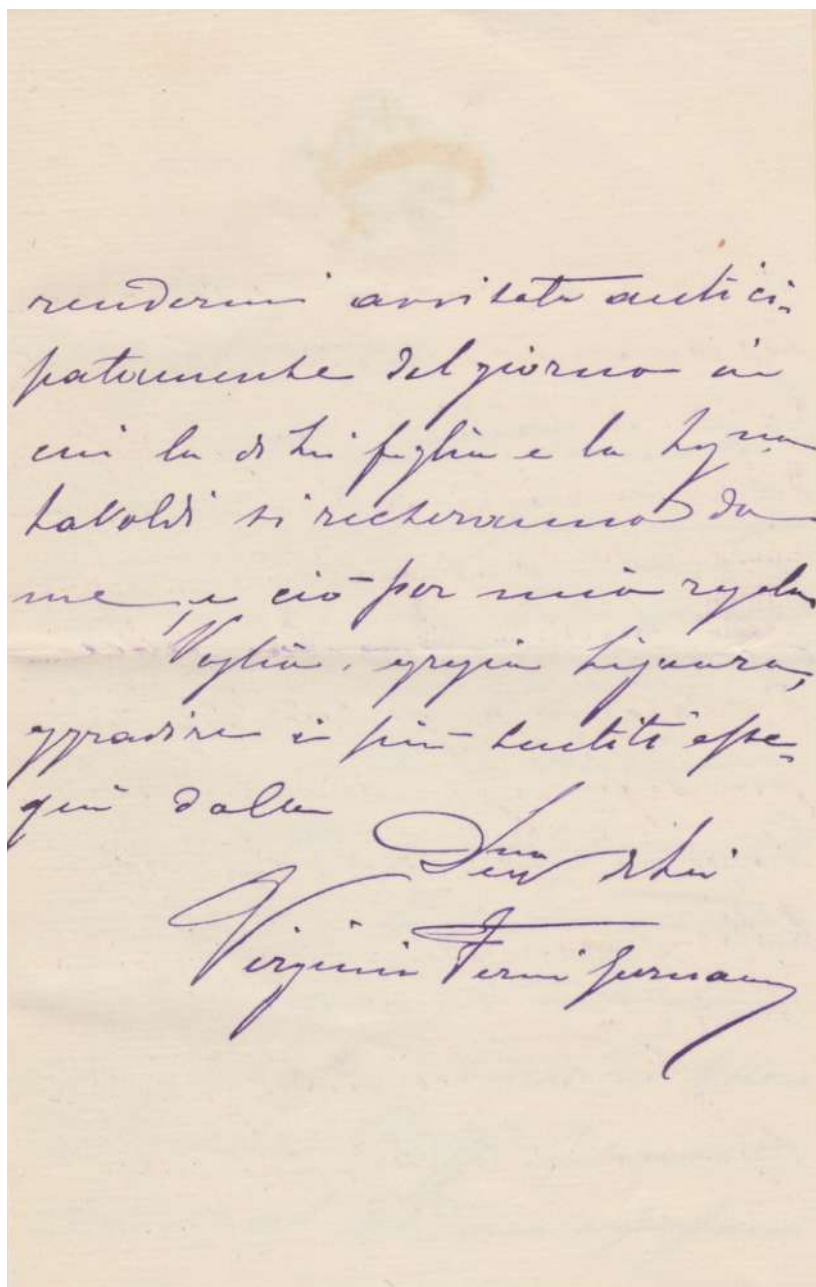 rendermi avvisata antici-
patamente del giorno in
cui la di Lei figlia e la Sig.na
si recheranno da
me, e ciò per mia regola
Voglia, egregia Signora,
aggradire i più sentiti osse-
qui dalla
Dev.ma di Lei
Virginia Ferni Germano